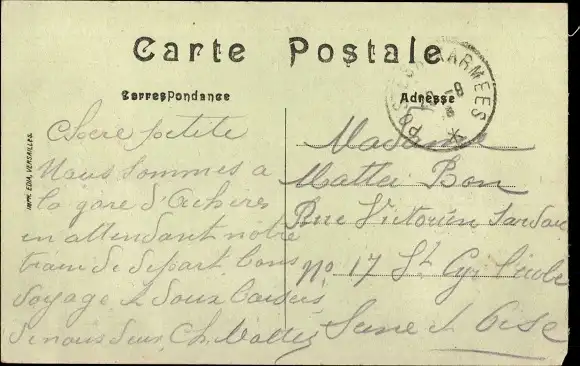 Carte Postale
Correspondance
Adresse
ARMEES
IMPR. EDIA, VERSAILLES.
Chere petite
Nous sommes a
la gare d'Acheres
en attendant notre
train de depart bons
voyage et doux baisers
de nous deux Ch. Mattei
Madame
Mattei Bon
Rue Victorien Sardou
No 17 St Cyr l'école
Seine et Oise